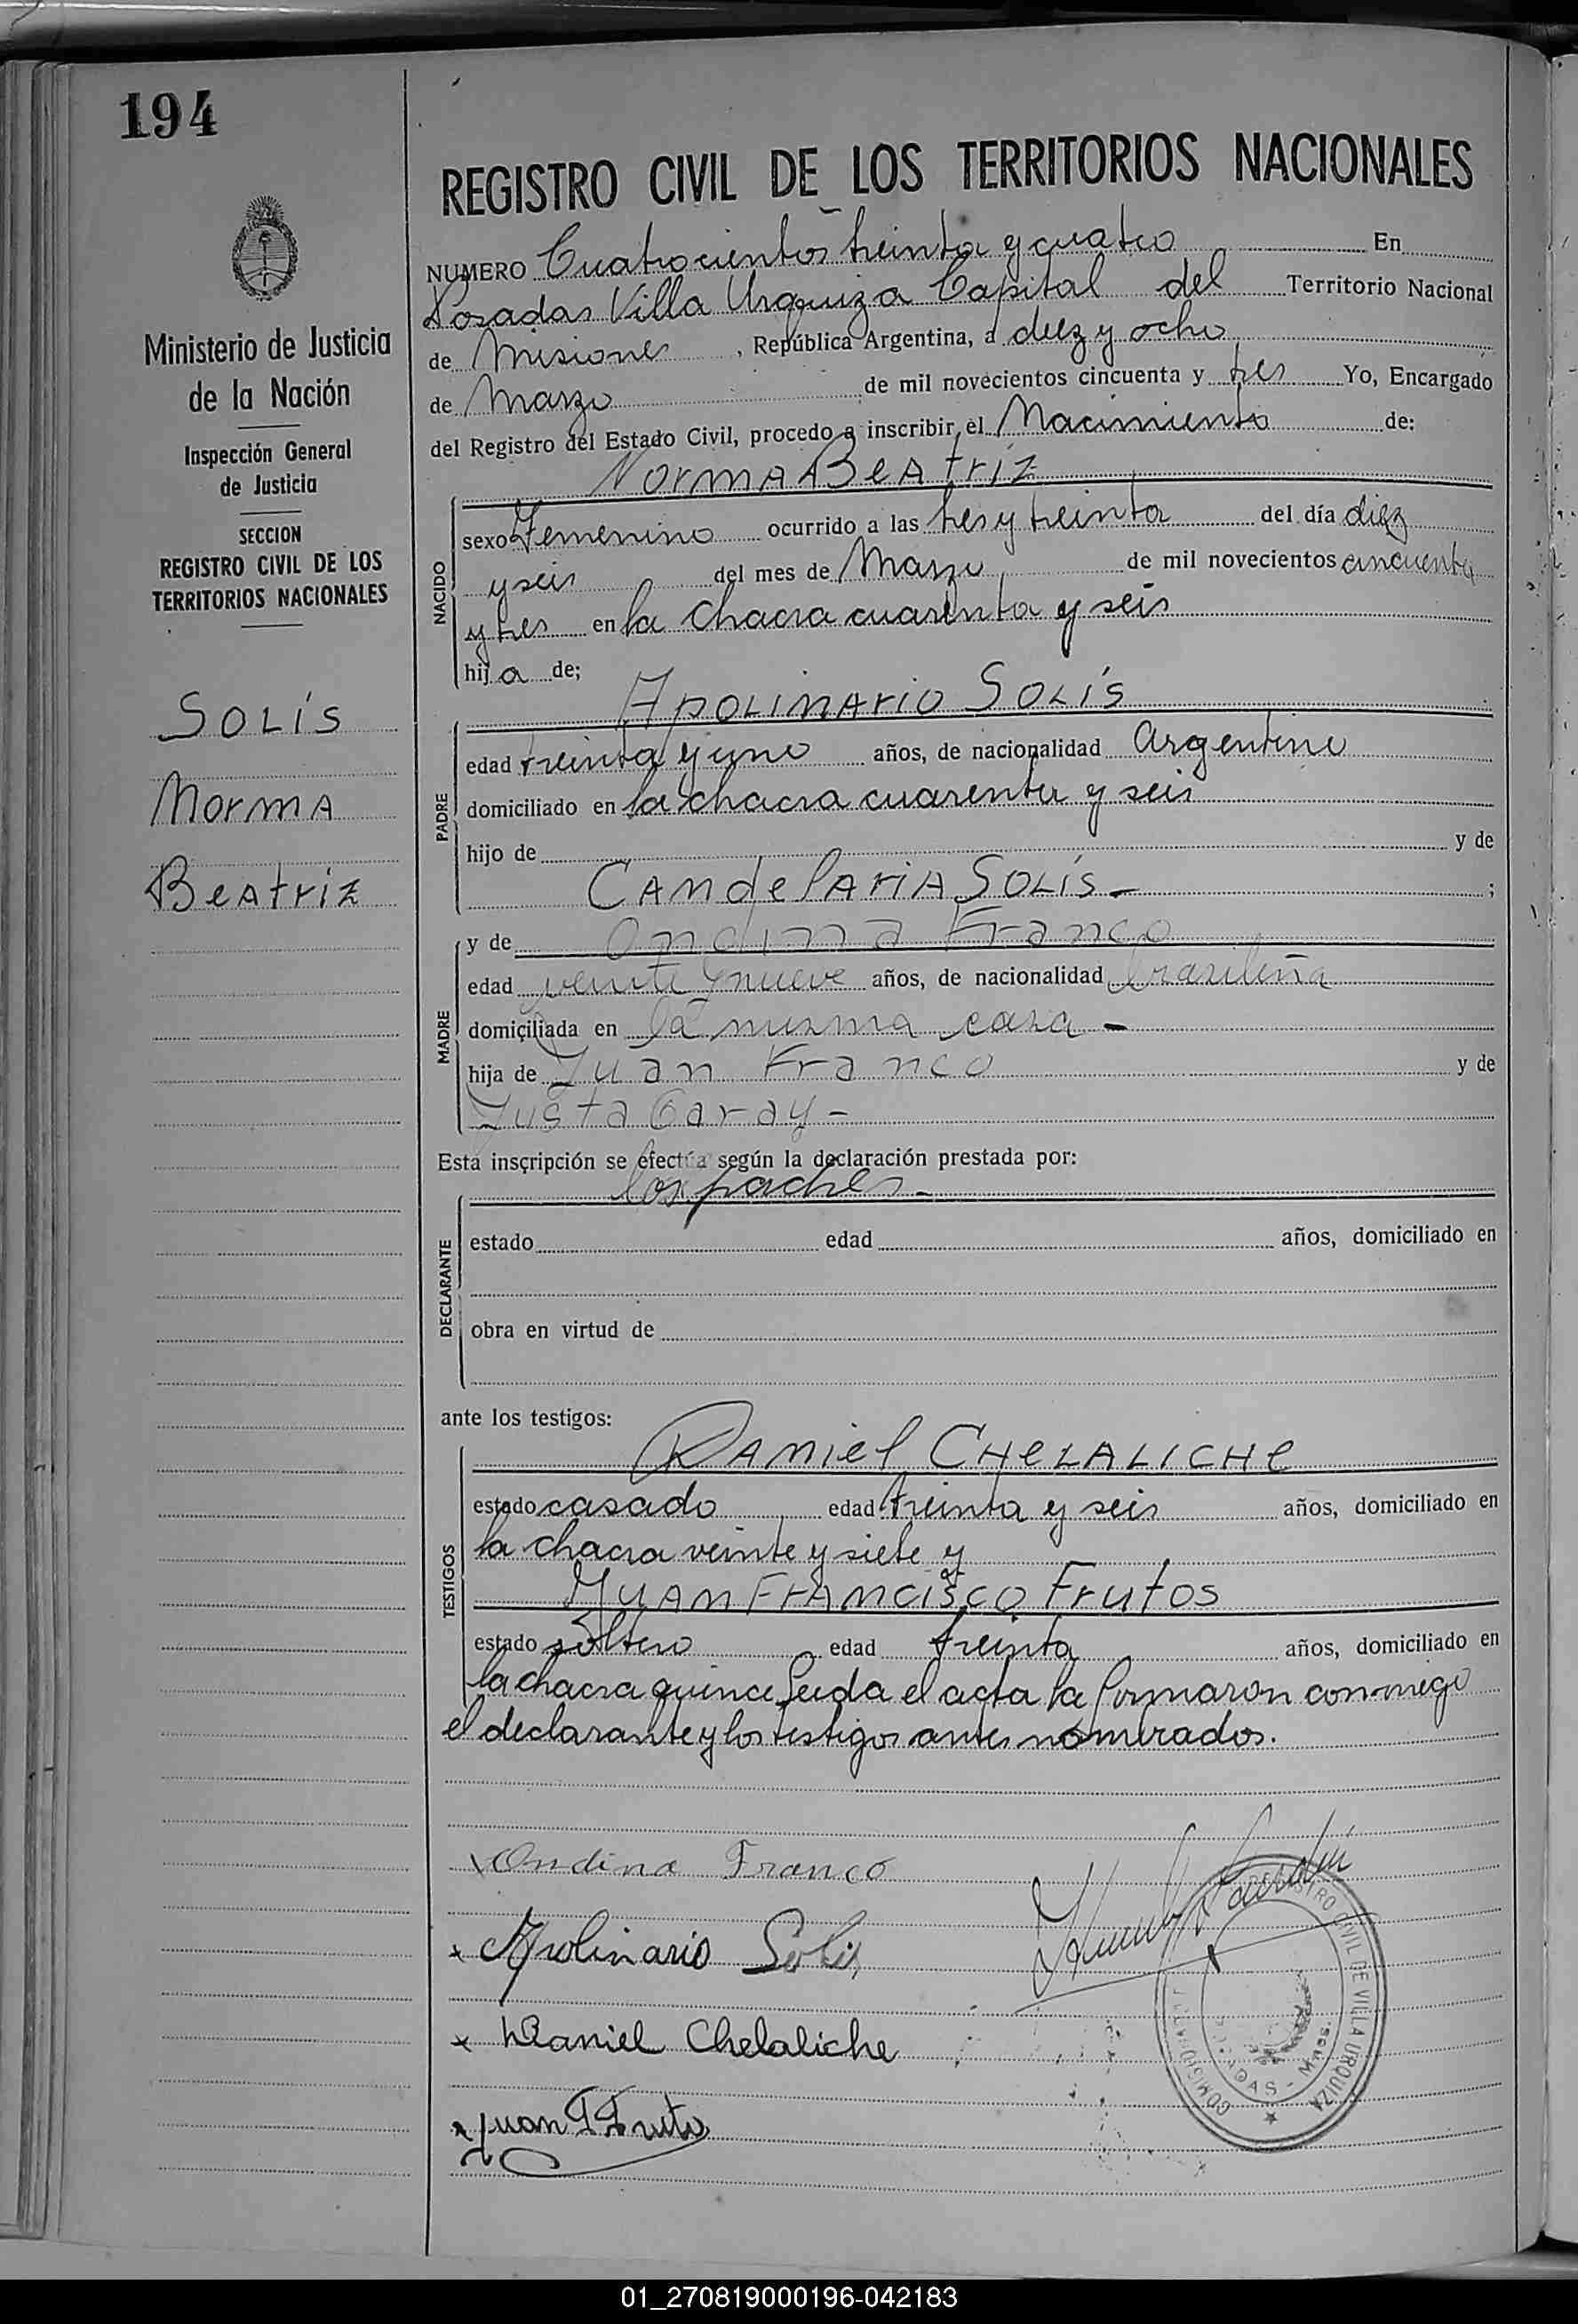 194
Ministerio de Justicia
de la Nación
Inspección General
de Justicia
SECCION
REGISTRO CIVIL DE LOS
TERRITORIOS NACIONALES
SOLÍS
NORMA
BEATRIZ
REGISTRO CIVIL DE LOS TERRITORIOS NACIONALES
NUMERO Cuatrocientos treinta y cuatro En
Posadas Villa Urquiza Capital del Territorio Nacional
de Misiones, República Argentina, a diez y ocho
de Marzo de mil novecientos cincuenta y tres Yo, Encargado
del Registro del Estado Civil, procedo a inscribir el Nacimiento de:
NORMA BEATRIZ
NACIDO
sexo Femenino ocurrido a las tres y treinta del día diez
y seis del mes de Marzo de mil novecientos cincuenta
y tres en la chacra cuarenta y seis
hija de;
APOLINARIO SOLÍS
PADRE
edad treinta y uno años, de nacionalidad Argentino
domiciliado en la chacra cuarenta y seis
hijo de y de
CANDELARIA SOLÍS - ;
MADRE
y de Ondina Franco
edad veinte y nueve años, de nacionalidad brasileña
domiciliada en la misma casa -
hija de Juan Franco y de
Justa Garay -
Esta inscripción se efectúa según la declaración prestada por:
los padres -
DECLARANTE
estado edad años, domiciliado en
obra en virtud de
ante los testigos:
DANIEL CHELALICHE
TESTIGOS
estado casado edad treinta y seis años, domiciliado en
la chacra veinte y siete y
JUAN FRANCISCO FRUTOS
estado soltero edad treinta años, domiciliado en
la chacra quince Leida el acta la firmaron con migo
el declarante y los testigos antes nombrados.
Ondina Franco
x Apolinario Solis
x Daniel Chelaliche
x Juan F Frutos
REGISTRO CIVIL DE VILLA URQUIZA
- Mnes.
01_270819000196-042183